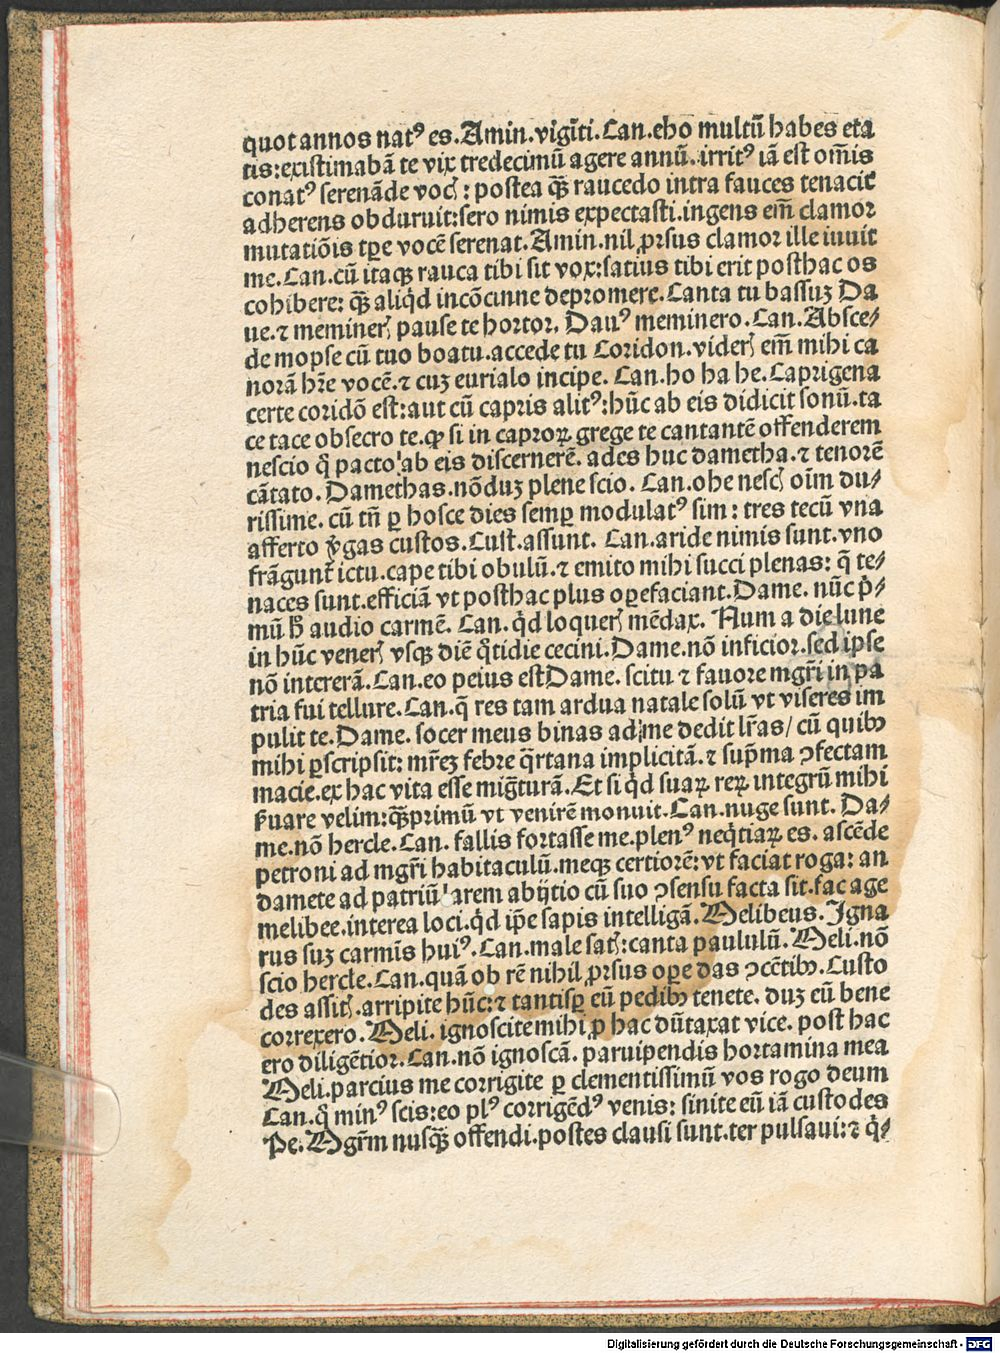 quot annos natꝰ es. Amin. vigīti. Can. eho multū habes eta
tis: existimabā te vix tredecimū agere annū. irritꝰ iā est om̄is
conatꝰ serenāde voc : postea qȝ̄ raucedo intra fauces tenacit̄
adherens obduruit: sero nimis expectasti. ingens em̄ clamor
mutatiōis tꝑe vocē serenat. Amin. nil ꝓrsus clamor ille iuuit
me. Can. cū itaqȝ rauca tibi sit vox: satius tibi erit posthac os
cohibere: qȝ̄ aliqͥd incōcinne depromere. Canta tu bassuȝ Da
ue. ⁊ meminer pause te hortor. Dauꝰ meminero. Can. Absce⸗
de mopse cū tuo boatu. accede tu Coridon. vider em̄ mihi ca
norā hr̄e vocē. ⁊ cuȝ eurialo incipe. Can. ho ha he. Caprigena
certe coridō est: aut cū capris alitꝰ: hūc ab eis didicit sonū. ta
ce tace obsecro te. ꝙ si in caproꝝ grege te cantantē offenderem
nescio q̄ pacto ab eis discernerē. ades huc dametha. ⁊ tenorē
cātato. Damethas. nōduȝ plene scio. Can. ohe nesc oīm du⸗
rissime. cū tn̄ ꝑ hosce dies semꝑ modulatꝰ sim: tres tecū vna
afferto v̓gas custos. Cust. assunt. Can. aride nimis sunt. vno
frāgunt̄ ictu. cape tibi obulū. ⁊ emito mihi succi plenas: q̄ te⸗
naces sunt. efficiā vt posthac plus oꝑefaciant. Dame. nūc pͥ⸗
mū h̄ audio carmē. Can. qͥd loquer mēdax. Num a die lune
in hūc vener vsqȝ diē q̄tidie cecini. Dame. nō inficior. sed ipse
nō intererā. Can. eo peius est Dame. scitu ⁊ fauore mgr̄i in pa
tria fui tellure. Can. q̄ res tam ardua natale solū vt viseres im
pulit te. Dame. socer meus binas ad me dedit lr̄as / cū quibꝰ
mihi ꝑscripsit: mr̄eȝ febre q̄rtana implicitā. ⁊ sup̄ma ꝯfectam
macie. ex hac vita esse miḡturā. Et si qͥd suaꝝ reꝝ integrū mihi
ẜuare velim: qȝ̄primū vt venirē monuit. Can. nuge sunt. Da⸗
me. nō hercle. Can. fallis fortasse me. plenꝰ neqͥtiaꝝ es. ascēde
petroni ad mgr̄i habitaculū. meqȝ certiorē: vt faciat roga: an
damete ad patriū larem abijtio cū suo ꝯsensu facta sit. fac age
melibee. interea loci. qͥd ip̄e sapis intelligā. Melibeus. Igna
rus suȝ carmīs huiꝰ. Can. male sat: canta paululū. Meli. nō
scio hercle. Can. quā ob rē nihil ꝓrsus oꝑe das ꝯcētibꝰ. Custo
des assit. arripite hūc: ⁊ tantisꝑ eū pedibꝰ tenete. duȝ eū bene
correxero. Meli. ignoscite mihi ꝓ hac dūtaxat vice. post hac
ero diligētior. Can. nō ignoscā. paruipendis hortamina mea
Meli. parcius me corrigite ꝑ clementissimū vos rogo deum
Can. q̄ minꝰ scis: eo plꝰ corrigēdꝰ venis: sinite eū iā custodes
Pe. Mgr̄m nusqȝ̄ offendi. postes clausi sunt. ter pulsaui: ⁊ qͥ⸗
Digitalisierung gefördert durch die Deutsche Forschungsgemeinschaft - DFG